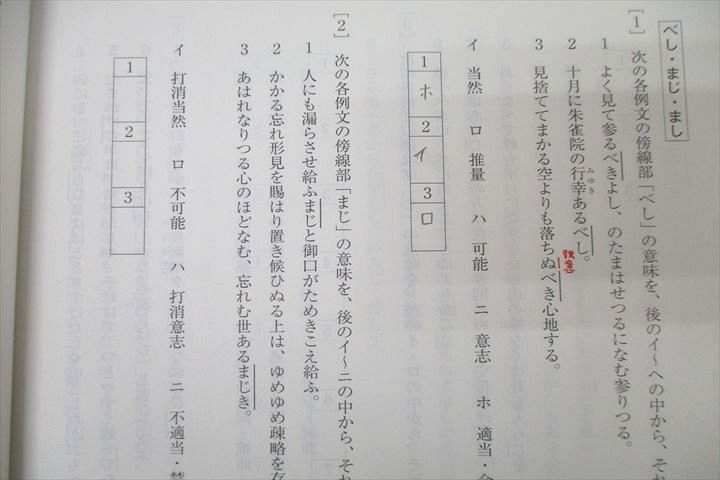 べし・まじ・まし
[1] 次の各例文の傍線部「べし」の意味を、後のイ〜ヘの中から、それ
1 よく見て参るべきよし、のたまはせつるになむ参りつる。
2 十月に朱雀院の行幸あるべし。
みゆき
強意
3 見捨ててまかる空よりも落ちぬべき心地する。
イ 当然 ロ 推量 ハ 可能 ニ 意志 ホ 適当・
1 ホ 2 イ 3 ロ
[2] 次の各例文の傍線部「まじ」の意味を、後のイ〜ニの中から、それ
1 人にも漏らさせ給ふまじと御口がためきこえ給ふ。
2 かかる忘れ形見を賜はり置き候ひぬる上は、ゆめゆめ疎略を存
3 あはれなりつる心のほどなむ、忘れむ世あるまじき。
イ 打消当然 ロ 不可能 ハ 打消意志 ニ 不適当・禁
1 2 3